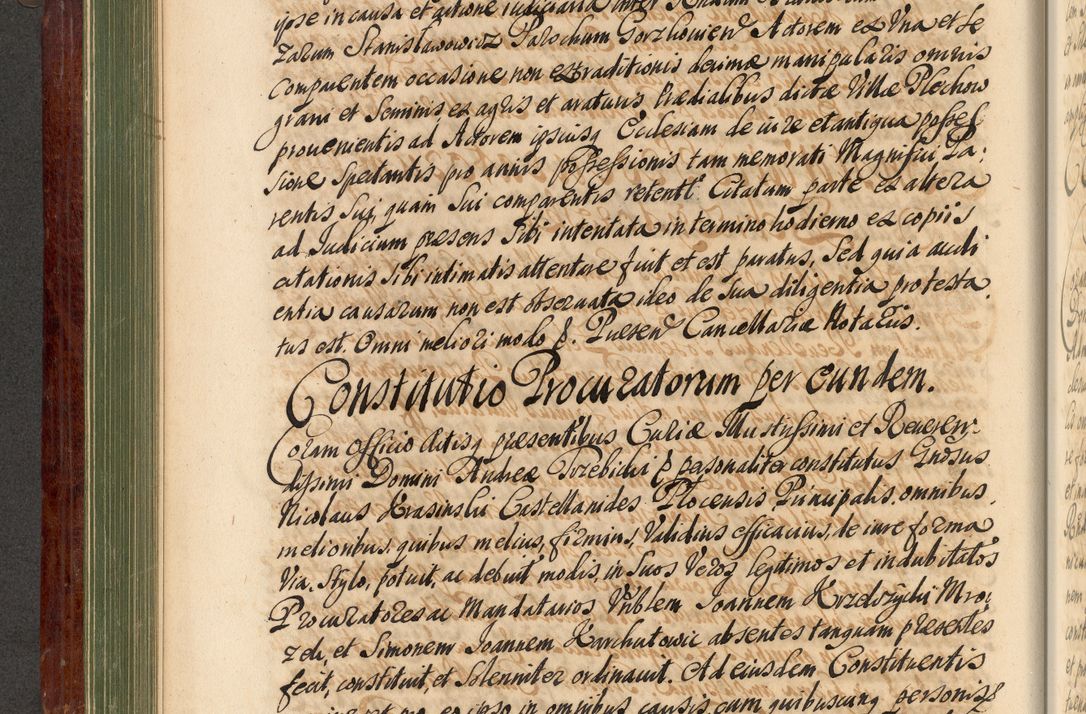 ipse in causa et actione iudiciaria inter
zarum Stanisławowicz Parochum Gorzkowien Actorem ex Vna et se
comparentem occasione non extraditionis decimæ manipularis omnis
grani et Seminis ex agris et araturis Prædialibus dictæ Villæ Plechow
prouenientis ad Actorem ipsiusq Ecclesiam de iure et antiqua posses
sione Spectantis pro annis possessionis tam memorati Magnifici Pa,
rentis Sui, quam Sui comparentis retentt Citatum parte ex altera
ad Iudicium præsens Sibi intentata in termino hodierno ex copiis
citationis Sibi intimatis attentare fuit et est paratus, Sed quia audi
entia causarum non est obseruata ideo de Sua diligentia protesta
tus est. Omni meliori modo p. Præsen Cancellariæ Notarius.
Constitutio Procuratorum per eundem.
Coram Officio Actisq præsentibus Curiæ Illustrissimi et Reueren
dissimi Domini Andreæ Trzebicki p personaliter constitutus Gnosus
Nicolaus Krasinski Castellanides Plocensis Principalis omnibus,
melioribus, quibus melius, firmius, Validius efficacius, de iure forma
Via, Stylo, potuit, ac debuit modis, in Suos Veros legitimos et indubitatos
Procuratores ac Mandatarios Vnblem Joannem Krzeczycki Mro,
zek, et Simonem Joannem Karchutowic absentes tanquam præsentes
fecit, constituit, et Solenniter ordinauit. Ad eiusdem Constituentis
eo ipso in omnibus causis, cum quibuscunq personis